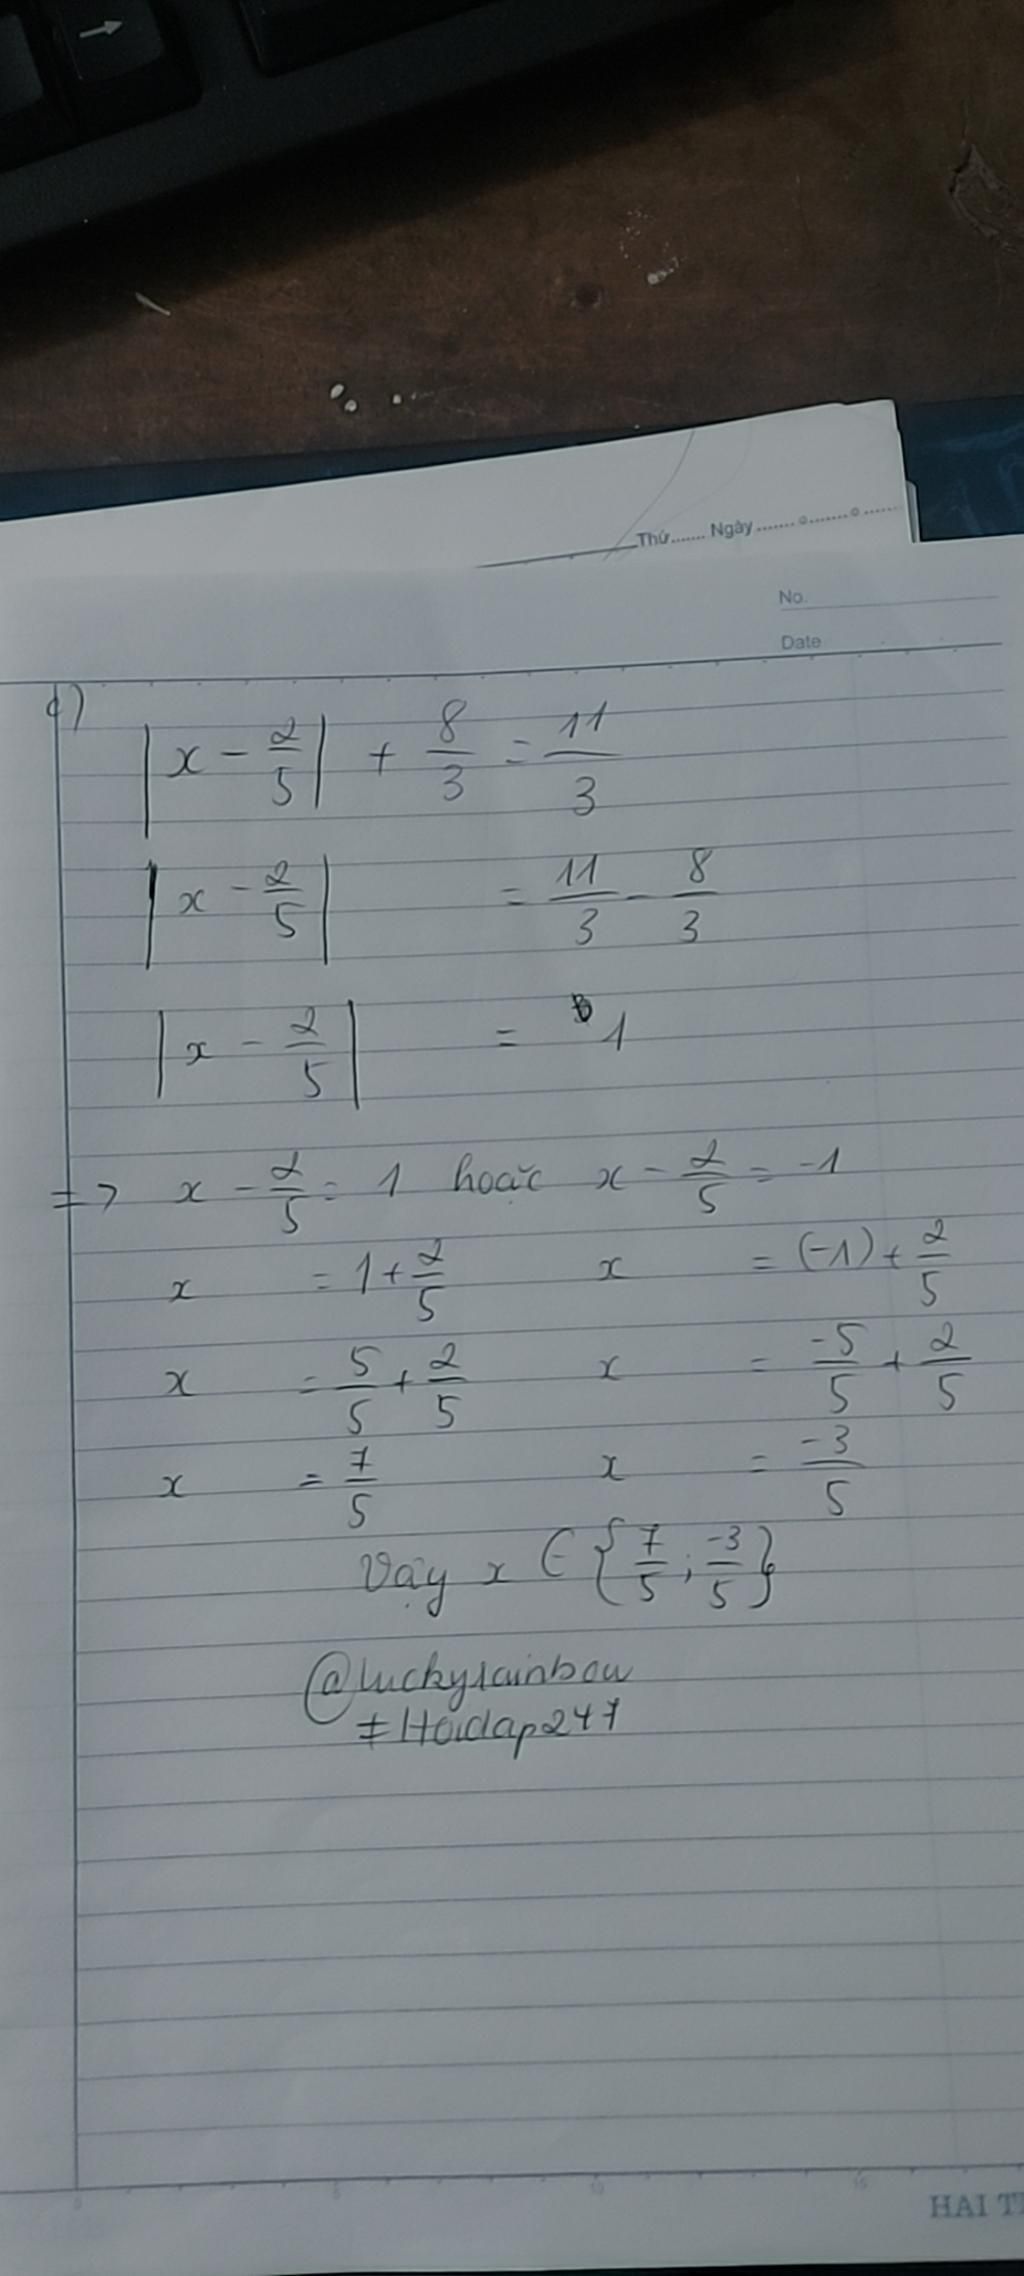 Thứ....... Ngày.......o.......o.......
No.
Date
c)
|x - 2/5| + 8/3 = 11/3
|x - 2/5| = 11/3 - 8/3
|x - 2/5| = 1
=> x - 2/5 = 1 hoặc x - 2/5 = -1
x = 1 + 2/5 x = (-1) + 2/5
x = 5/5 + 2/5 x = -5/5 + 2/5
x = 7/5 x = -3/5
Vậy x ∈ {7/5; -3/5}
@luckyrainbow
#Hoidap247
0 5 10 15
HAI T